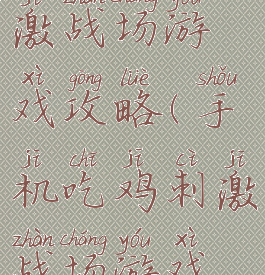 jī zhàn chǎng yóu
激战场游
xì gōng lüè shǒu
戏攻略(手
jī chī jī cì jī
机吃鸡刺激
zhàn chǎng yóu xì
战场游戏